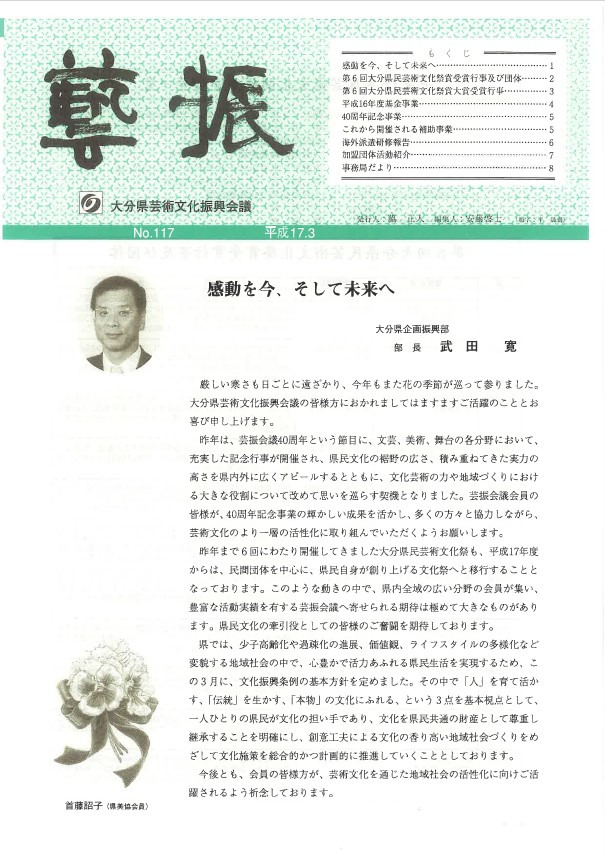 藝振
大分県芸術文化振興会議
もくじ
感動を今、そして未来へ……1
第6回大分県民芸術文化祭賞受賞行事及び団体……2
第6回大分県民芸術文化祭賞大賞受賞行事……3
平成16年度基金事業……4
40周年記念事業……5
これから開催される補助事業……5
海外派遣研修報告……6
加盟団体活動紹介……7
事務局だより……8
発行人：脇 正人 編集人：安藤啓士
No.117 平成17.3
感動を今、そして未来へ
大分県企画振興部
部長 武田 寛
厳しい寒さも日ごとに遠ざかり、今年もまた花の季節が巡って参りました。
大分県芸術文化振興会議の皆様方におかれましてはますますご活躍のこととお
喜び申し上げます。
昨年は、芸振会議40周年という節目に、文芸、美術、舞台の各分野において、
充実した記念行事が開催され、県民文化の裾野の広さ、積み重ねてきた実力の
高さを県内外に広くアピールするとともに、文化芸術の力や地域づくりにおけ
る大きな役割について改めて思いを巡らす契機となりました。芸振会議会員の
皆様が、40周年記念事業の輝かしい成果を活かし、多くの方々と協力しながら、
芸術文化のより一層の活性化に取り組んでいただくようお願いします。
昨年まで6回にわたり開催してきました大分県民芸術文化祭も、平成17年度
からは、民間団体を中心に、県民自身が創り上げる文化祭へと移行することと
なっております。このような動きの中で、県内全域の広い分野の会員が集い、
豊富な活動実績を有する芸振会議へ寄せられる期待は極めて大きなものがあり
ます。県民文化の牽引役としての皆様のご奮闘を期待しております。
県では、少子高齢化や過疎化の進展、価値観、ライフスタイルの多様化など
変貌する地域社会の中で、心豊かで活力あふれる県民生活を実現するため、こ
の3月に、文化振興条例の基本方針を定めました。その中で「人」を育て活か
す、「伝統」を生かす、「本物」の文化にふれる、という3点を基本視点として、
一人ひとりの県民が文化の担い手であり、文化を県民共通の財産として尊重し
継承することを明確にし、創意工夫による文化の香り高い地域社会づくりをめ
ざして文化施策を総合的かつ計画的に推進していくこととしております。
今後とも、会員の皆様方が、芸術文化を通じた地域社会の活性化に向けご活
躍されるよう祈念しております。
首藤詔子（県美協会員）